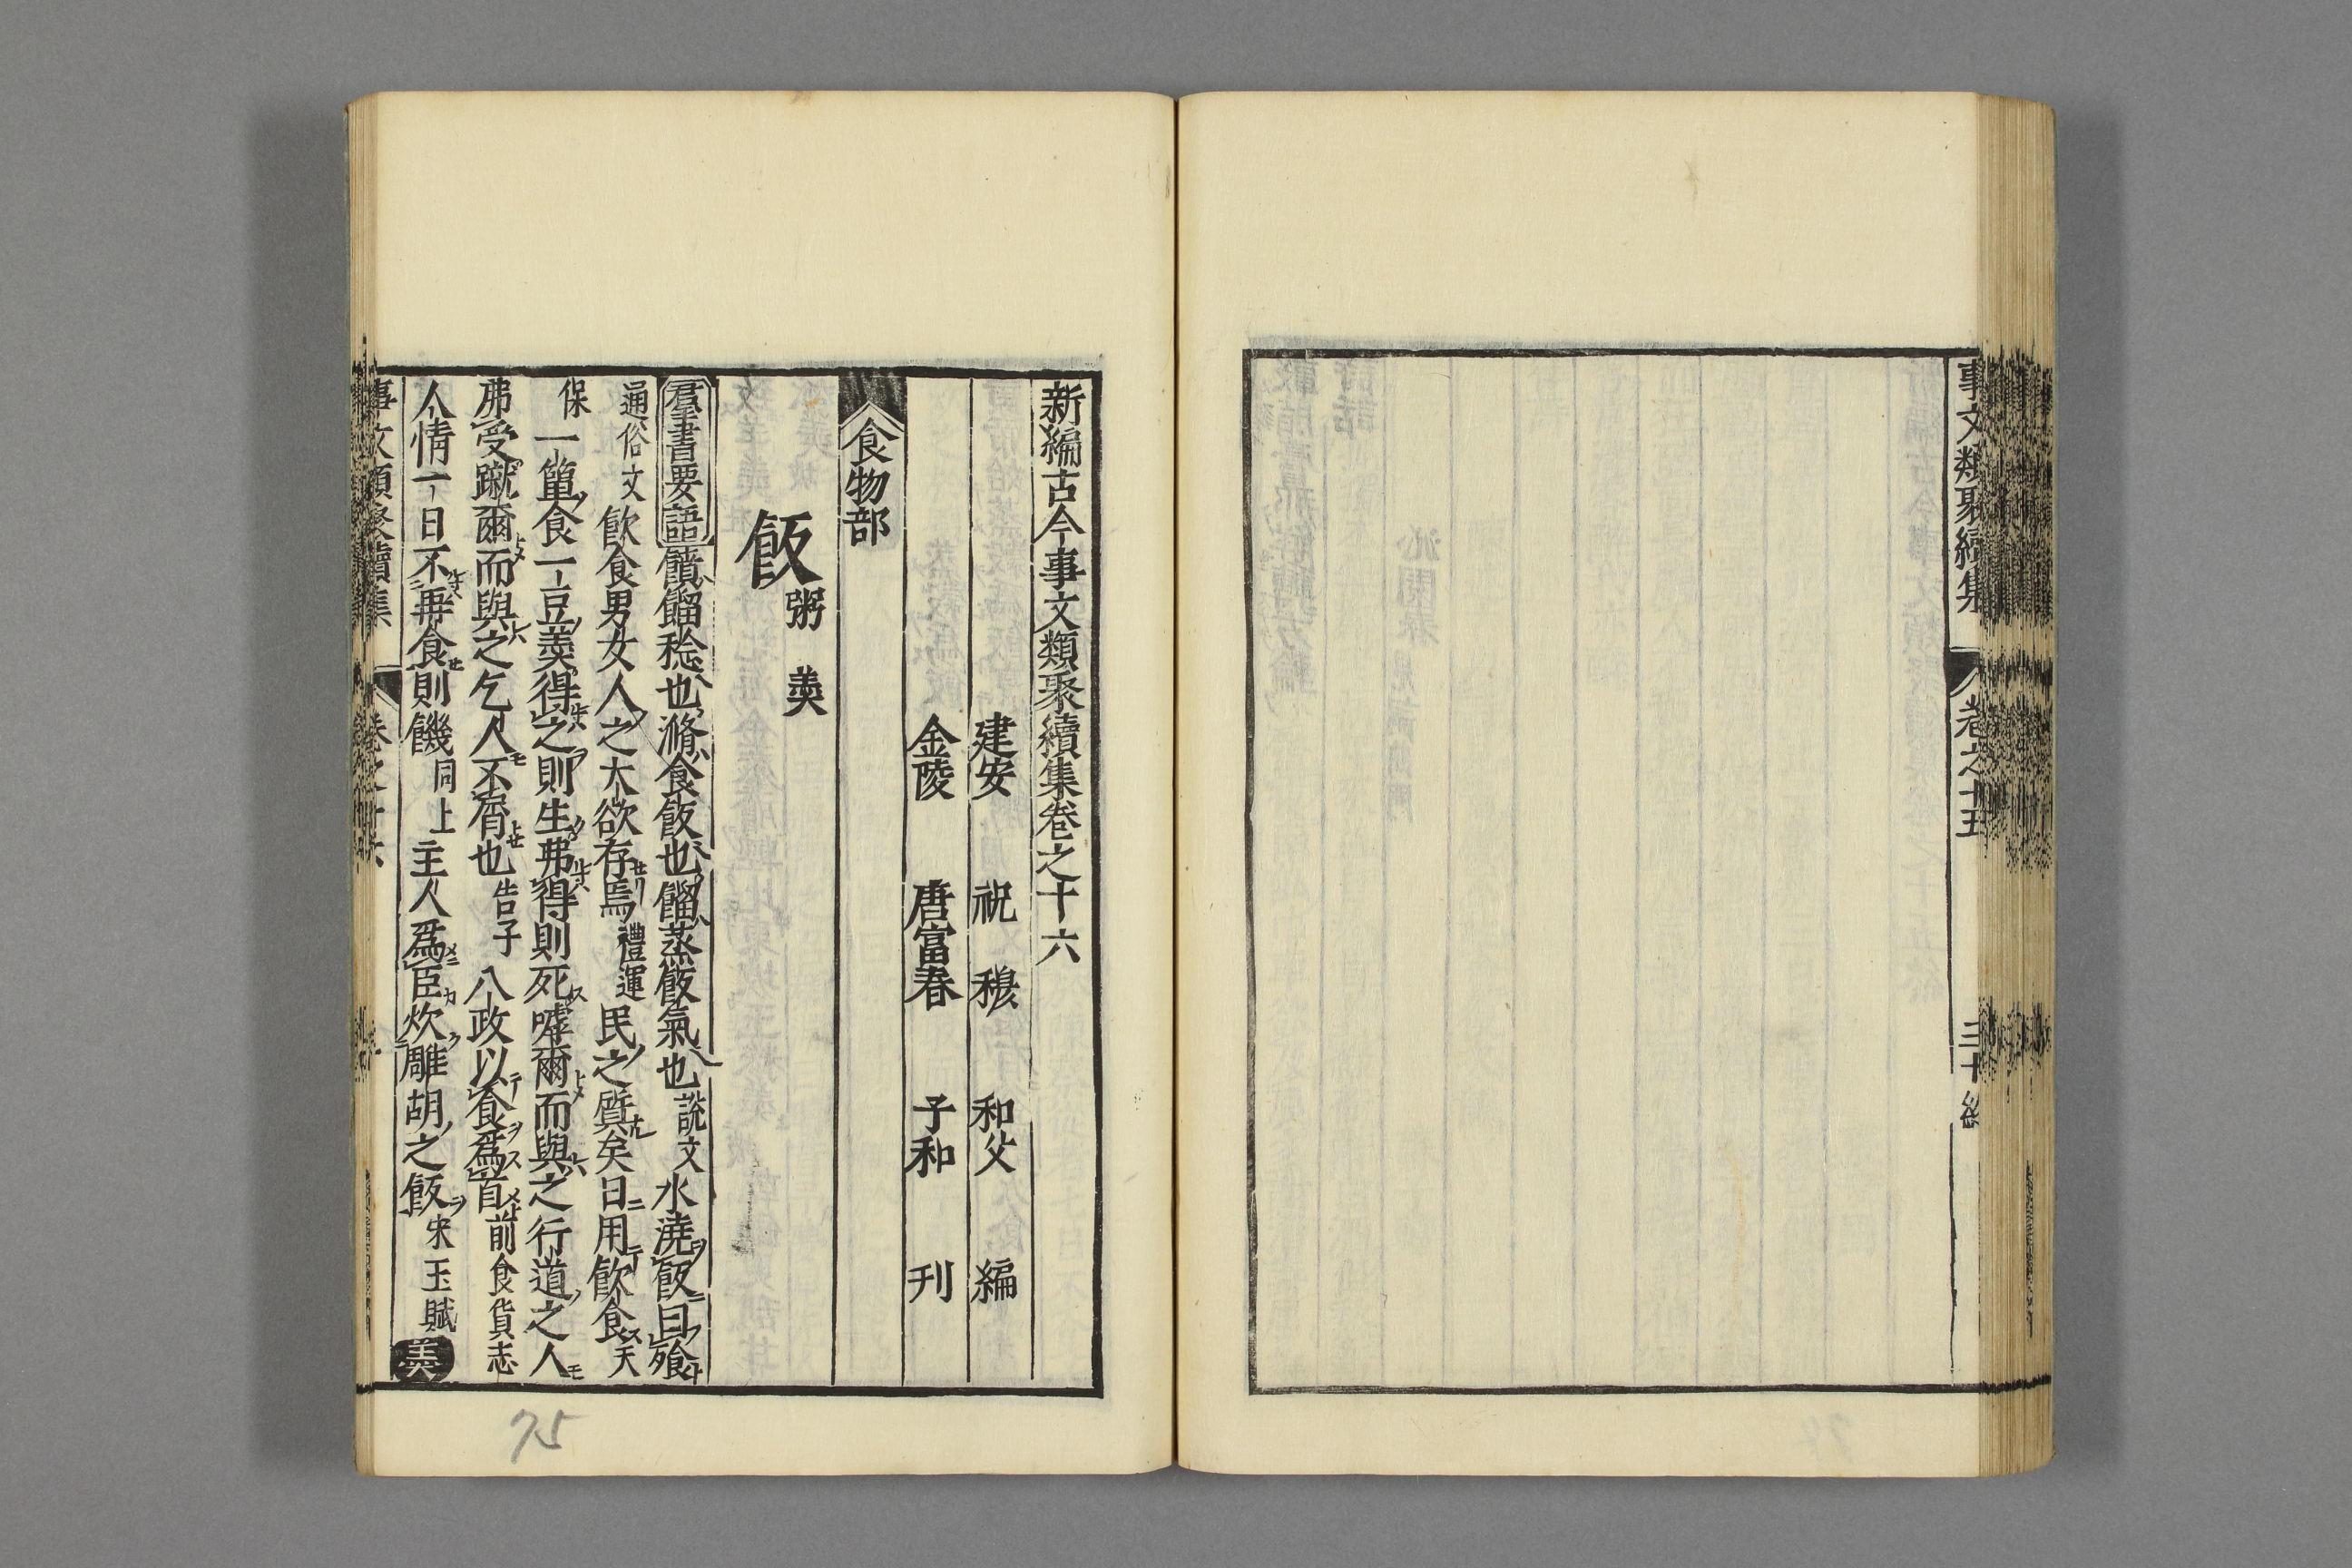 事文類聚續集
卷之十五
三十終
新編古今事文類聚續集卷之十六
建安 祝 穆 和父 編
金陵 唐富春 子和 刊
食物部
飯 粥 羹
羣書要語饙餾稔也滫食飯也餾蒸飯氣也說文水澆飯曰飱
通俗文飲食男女人之大欲存焉禮運民之質矣日用飲食天
保一簞食一豆羹得之則生弗得則死嘑爾而與之行道之人
弗受蹴爾而與之乞人不屑也告子八政以食爲首前食貨志
人情一日不再食則饑同上主人爲臣炊雕胡之飯宋玉賦羹
事文類聚續集
卷之十六
75